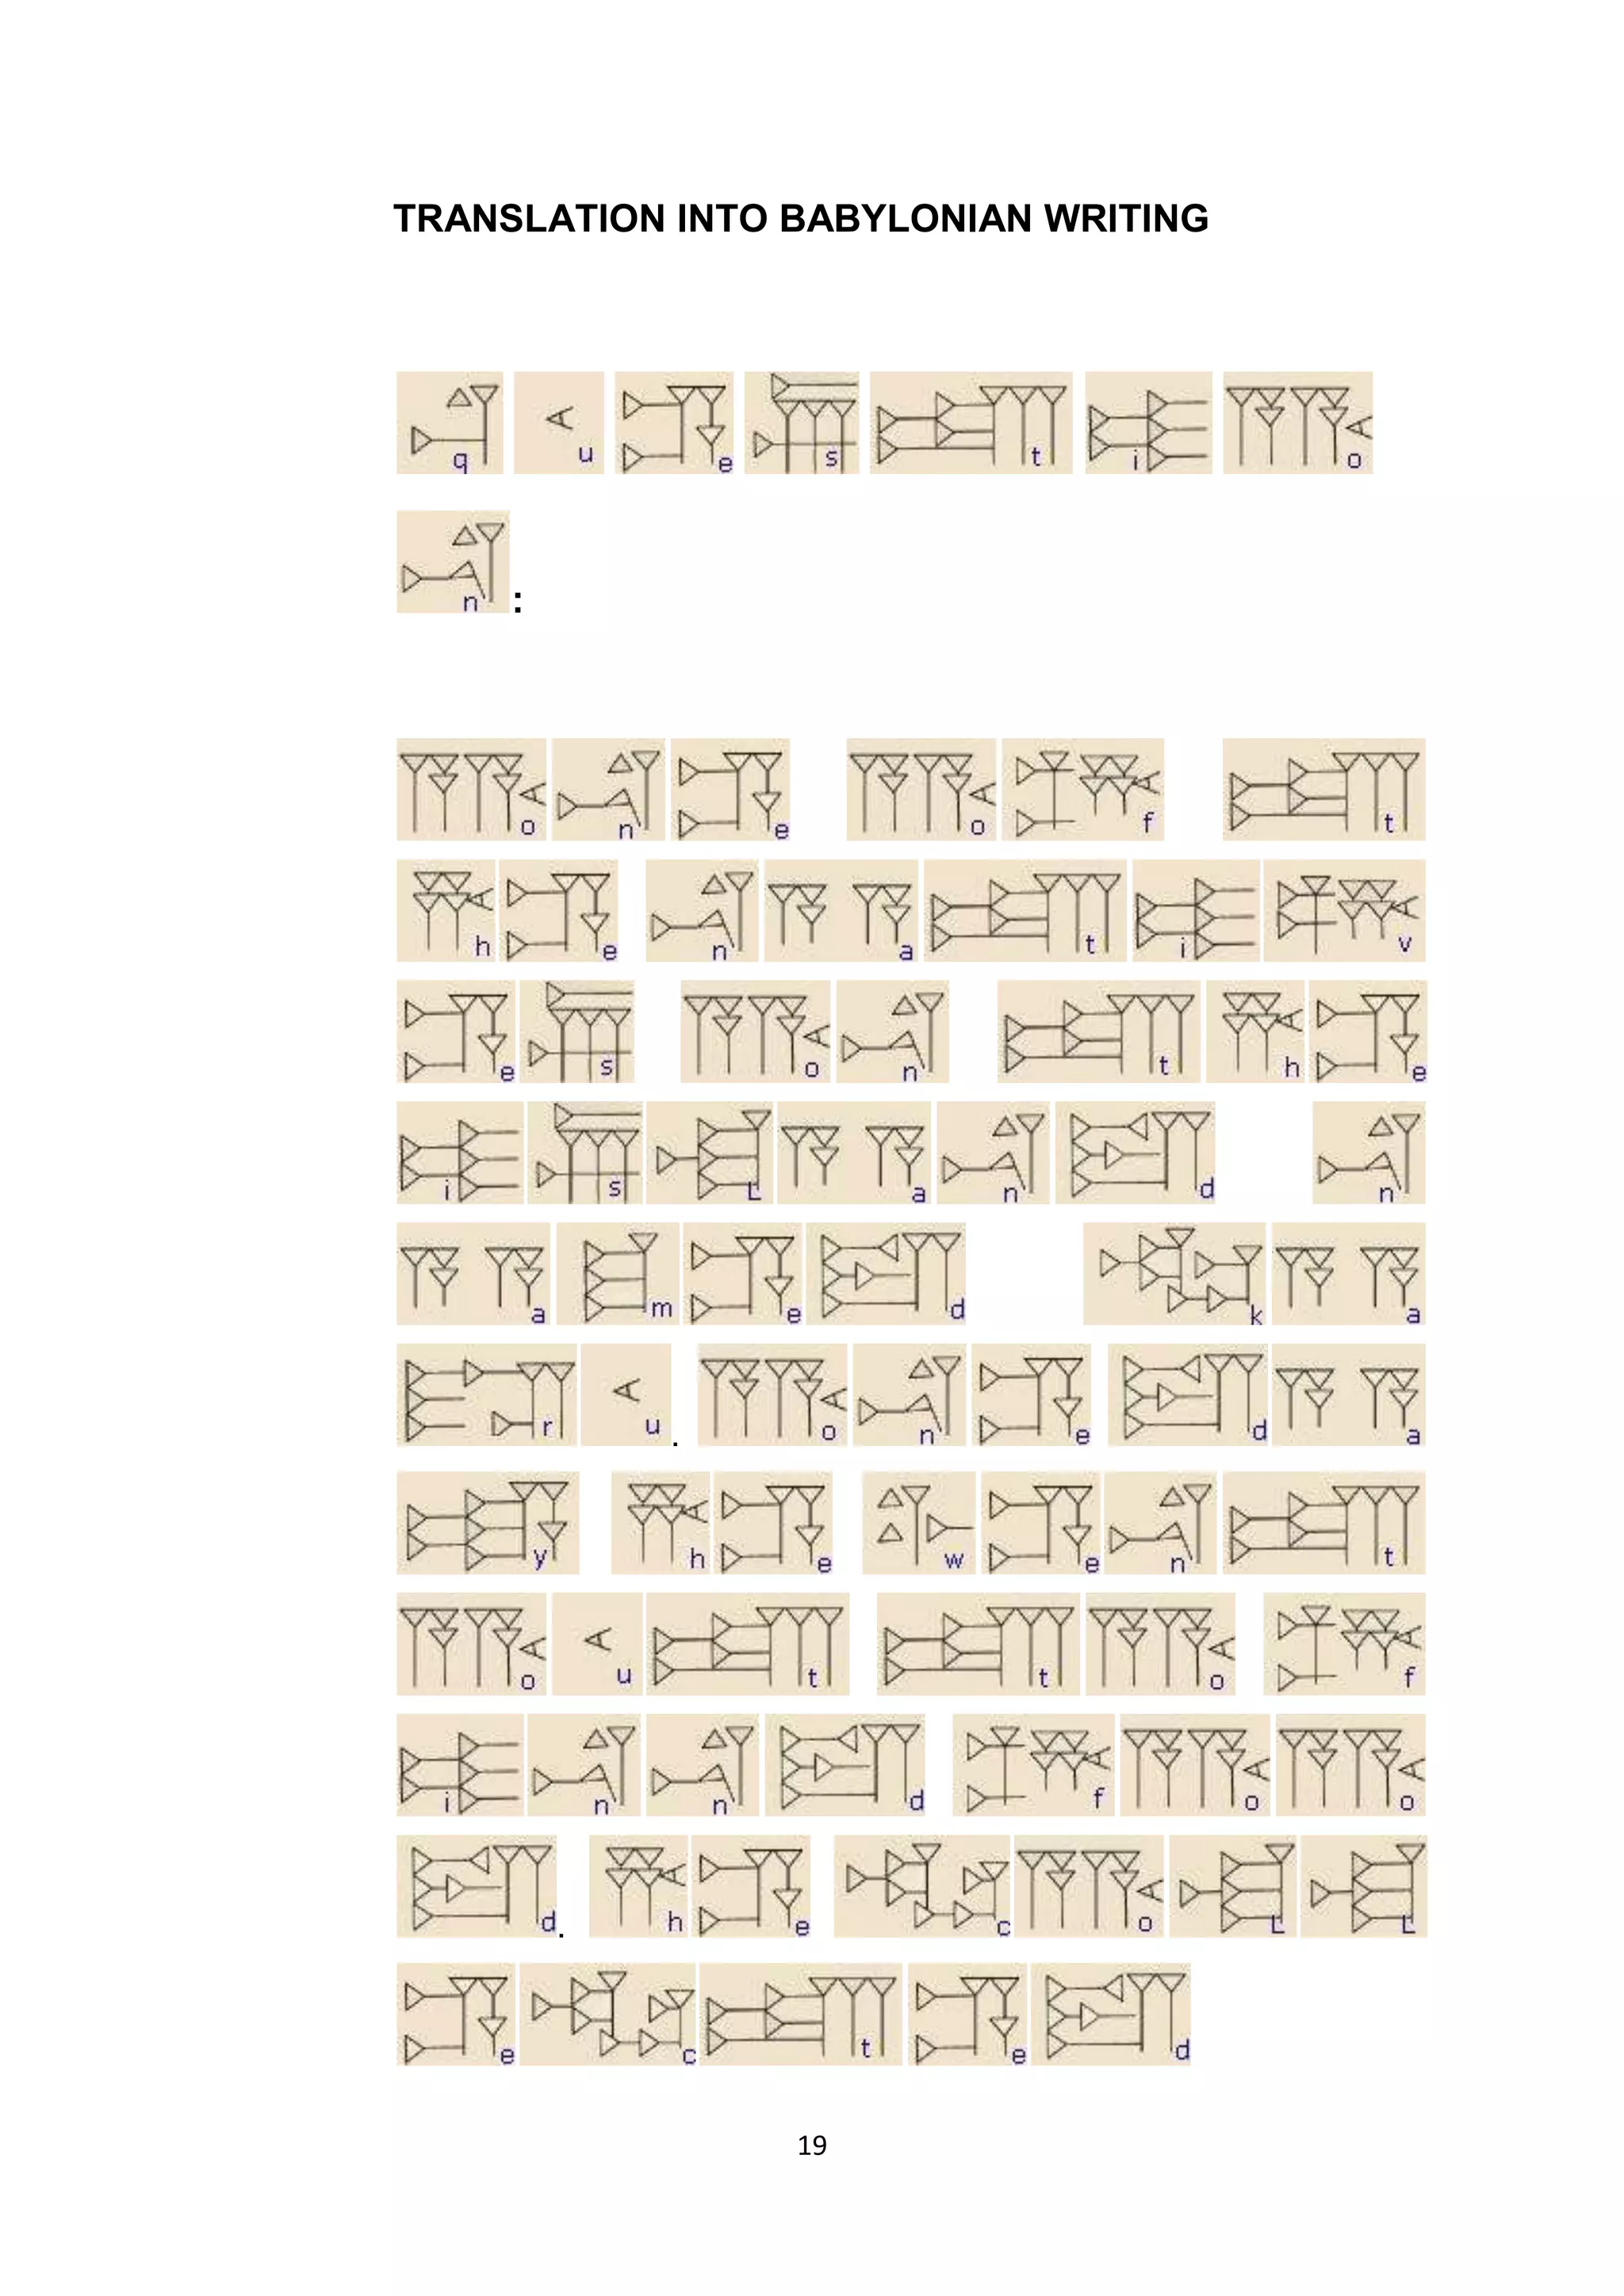 TRANSLATION INTO BABYLONIAN WRITING
q u e s t i o
n :
o n e o f t
h e n a t i v
e s o n t h e
i s L a n d n
a m e d k a
r u . o n e d a
y h e w e n t
o u t t o f
i n n d f o o
d . h e c o L L
e c t e d
19